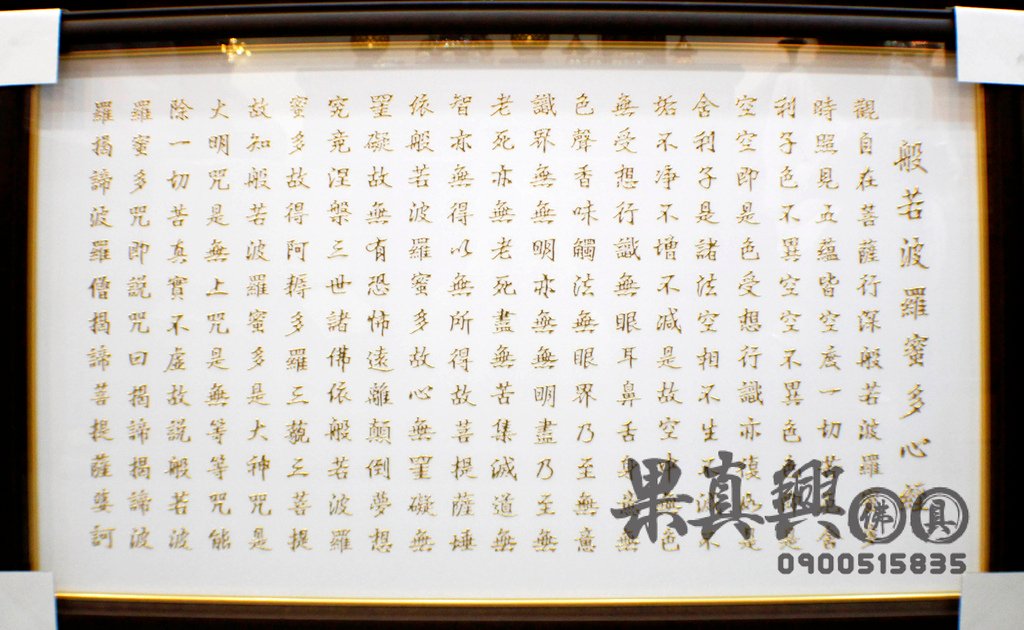 般若波羅蜜多心經
觀自在菩薩行深般若波羅蜜多
時照見五蘊皆空度一切苦厄舍
利子色不異空空不異色色即是
空空即是色受想行識亦復如是
舍利子是諸法空相不生不滅不
垢不淨不增不減是故空中無色
無受想行識無眼耳鼻舌身意無
色聲香味觸法無眼界乃至無意
識界無無明亦無無明盡乃至無
老死亦無老死盡無苦集滅道無
智亦無得以無所得故菩提薩埵
依般若波羅蜜多故心無罣礙無
罣礙故無有恐怖遠離顛倒夢想
究竟涅槃三世諸佛依般若波羅
蜜多故得阿耨多羅三藐三菩提
故知般若波羅蜜多是大神咒是
大明咒是無上咒是無等等咒能
除一切苦真實不虛故說般若波
羅蜜多咒即說咒曰揭諦揭諦波
羅揭諦波羅僧揭諦菩提薩婆訶
果真興佛具
0900515835